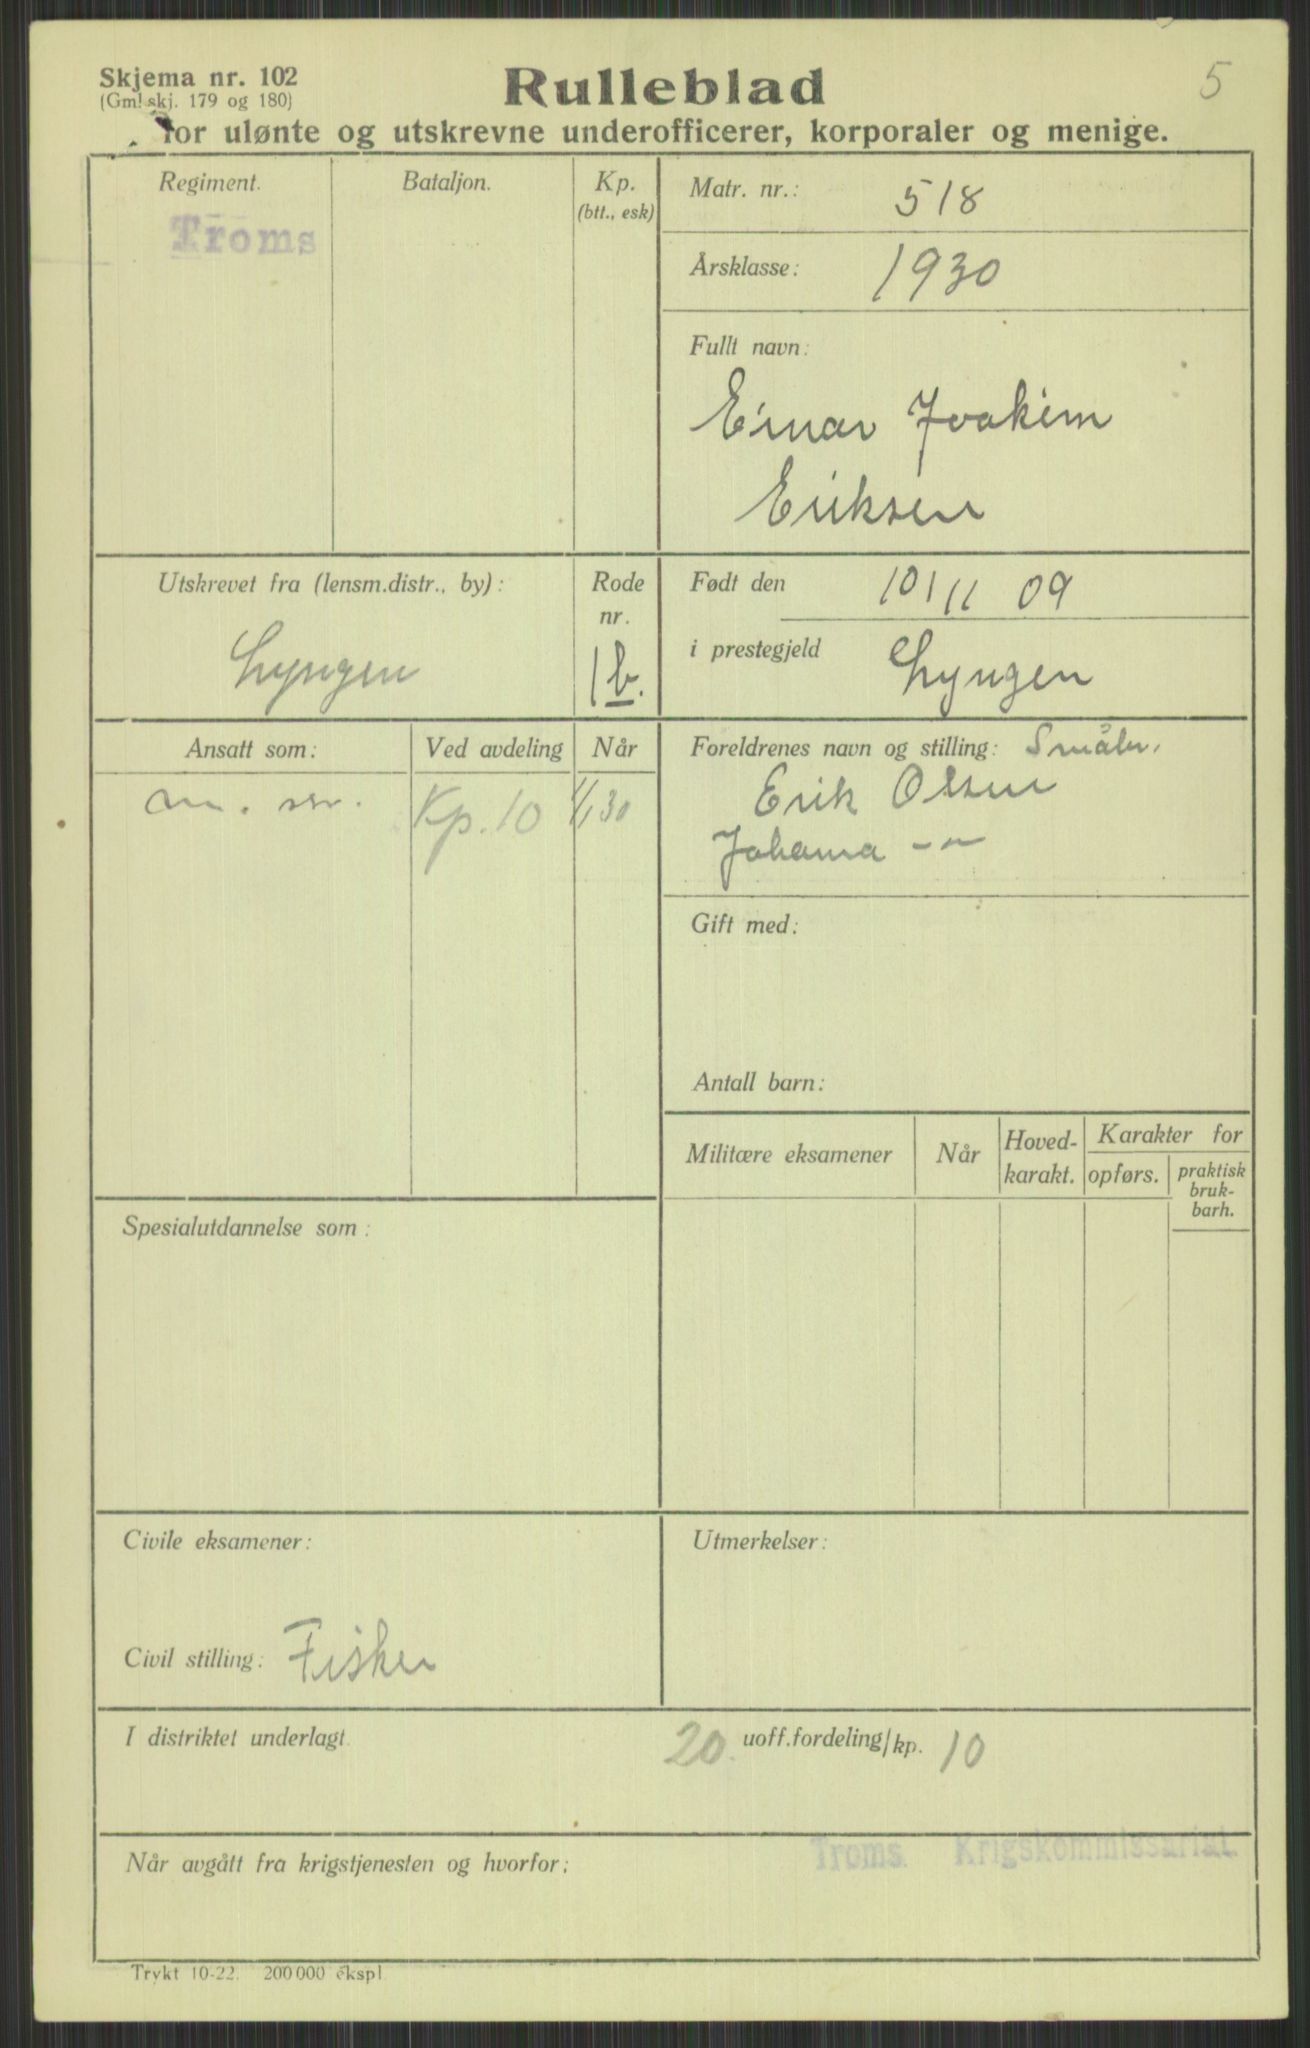 5
Skjema nr. 102
(Gml skj. 179 og 180)
Rulleblad
for ulønte og utskrevne underofficerer, korporaler og menige.
Regiment.
Troms
Bataljon.
Kp.
(btt., esk)
Matr. nr.: 518
Årsklasse: 1930
Fullt navn:
Einar Joakim
Eriksen
Utskrevet fra (lensm.distr., by):
Lyngen
Rode
nr.
1 b.
Født den 10/11 09
i prestegjeld Lyngen
Ansatt som:
Ved avdeling
Når
Kp. 10
1/1 30
Foreldrenes navn og stilling: Småbr.
Erik Olsen
Johanna -"-
Gift med:
Antall barn:
Militære eksamener
Når
Hoved-
karakt.
Karakter for
opførs.
praktisk
bruk-
barh.
Spesialutdannelse som:
Civile eksamener:
Utmerkelser:
Civil stilling: Fisker
I distriktet underlagt 20. uoff.fordeling/kp. 10
Troms. Krigskommissariat.
Når avgått fra krigstjenesten og hvorfor:
Trykt 10-22. 200000 ekspl